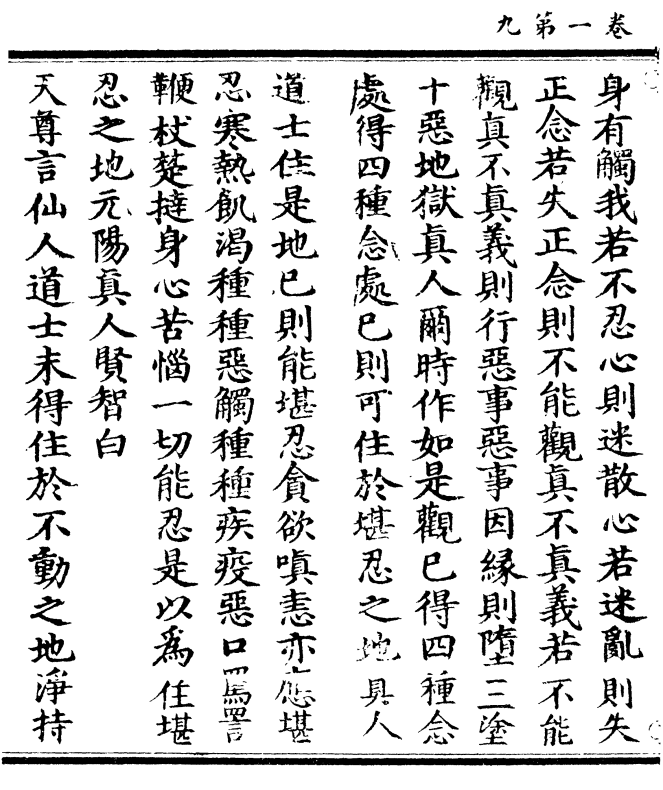 卷一第九
身有觸我若不忍心則迷散心若迷亂則失
正念若失正念則不能觀真不真義若不能
觀真不真義則行惡事惡事因緣則墮三塗
十惡地獄真人爾時作如是觀已得四種念
處得四種念處已則可住於堪忍之地真人
道士住是地已則能堪忍貪欲嗔恚亦能堪
忍寒熱飢渴種種惡觸種種疾疫惡口罵詈
鞭杖楚撻身心苦惱一切能忍是以為住堪
忍之地元陽真人賢智白
天尊言仙人道士未得住於不動之地淨持